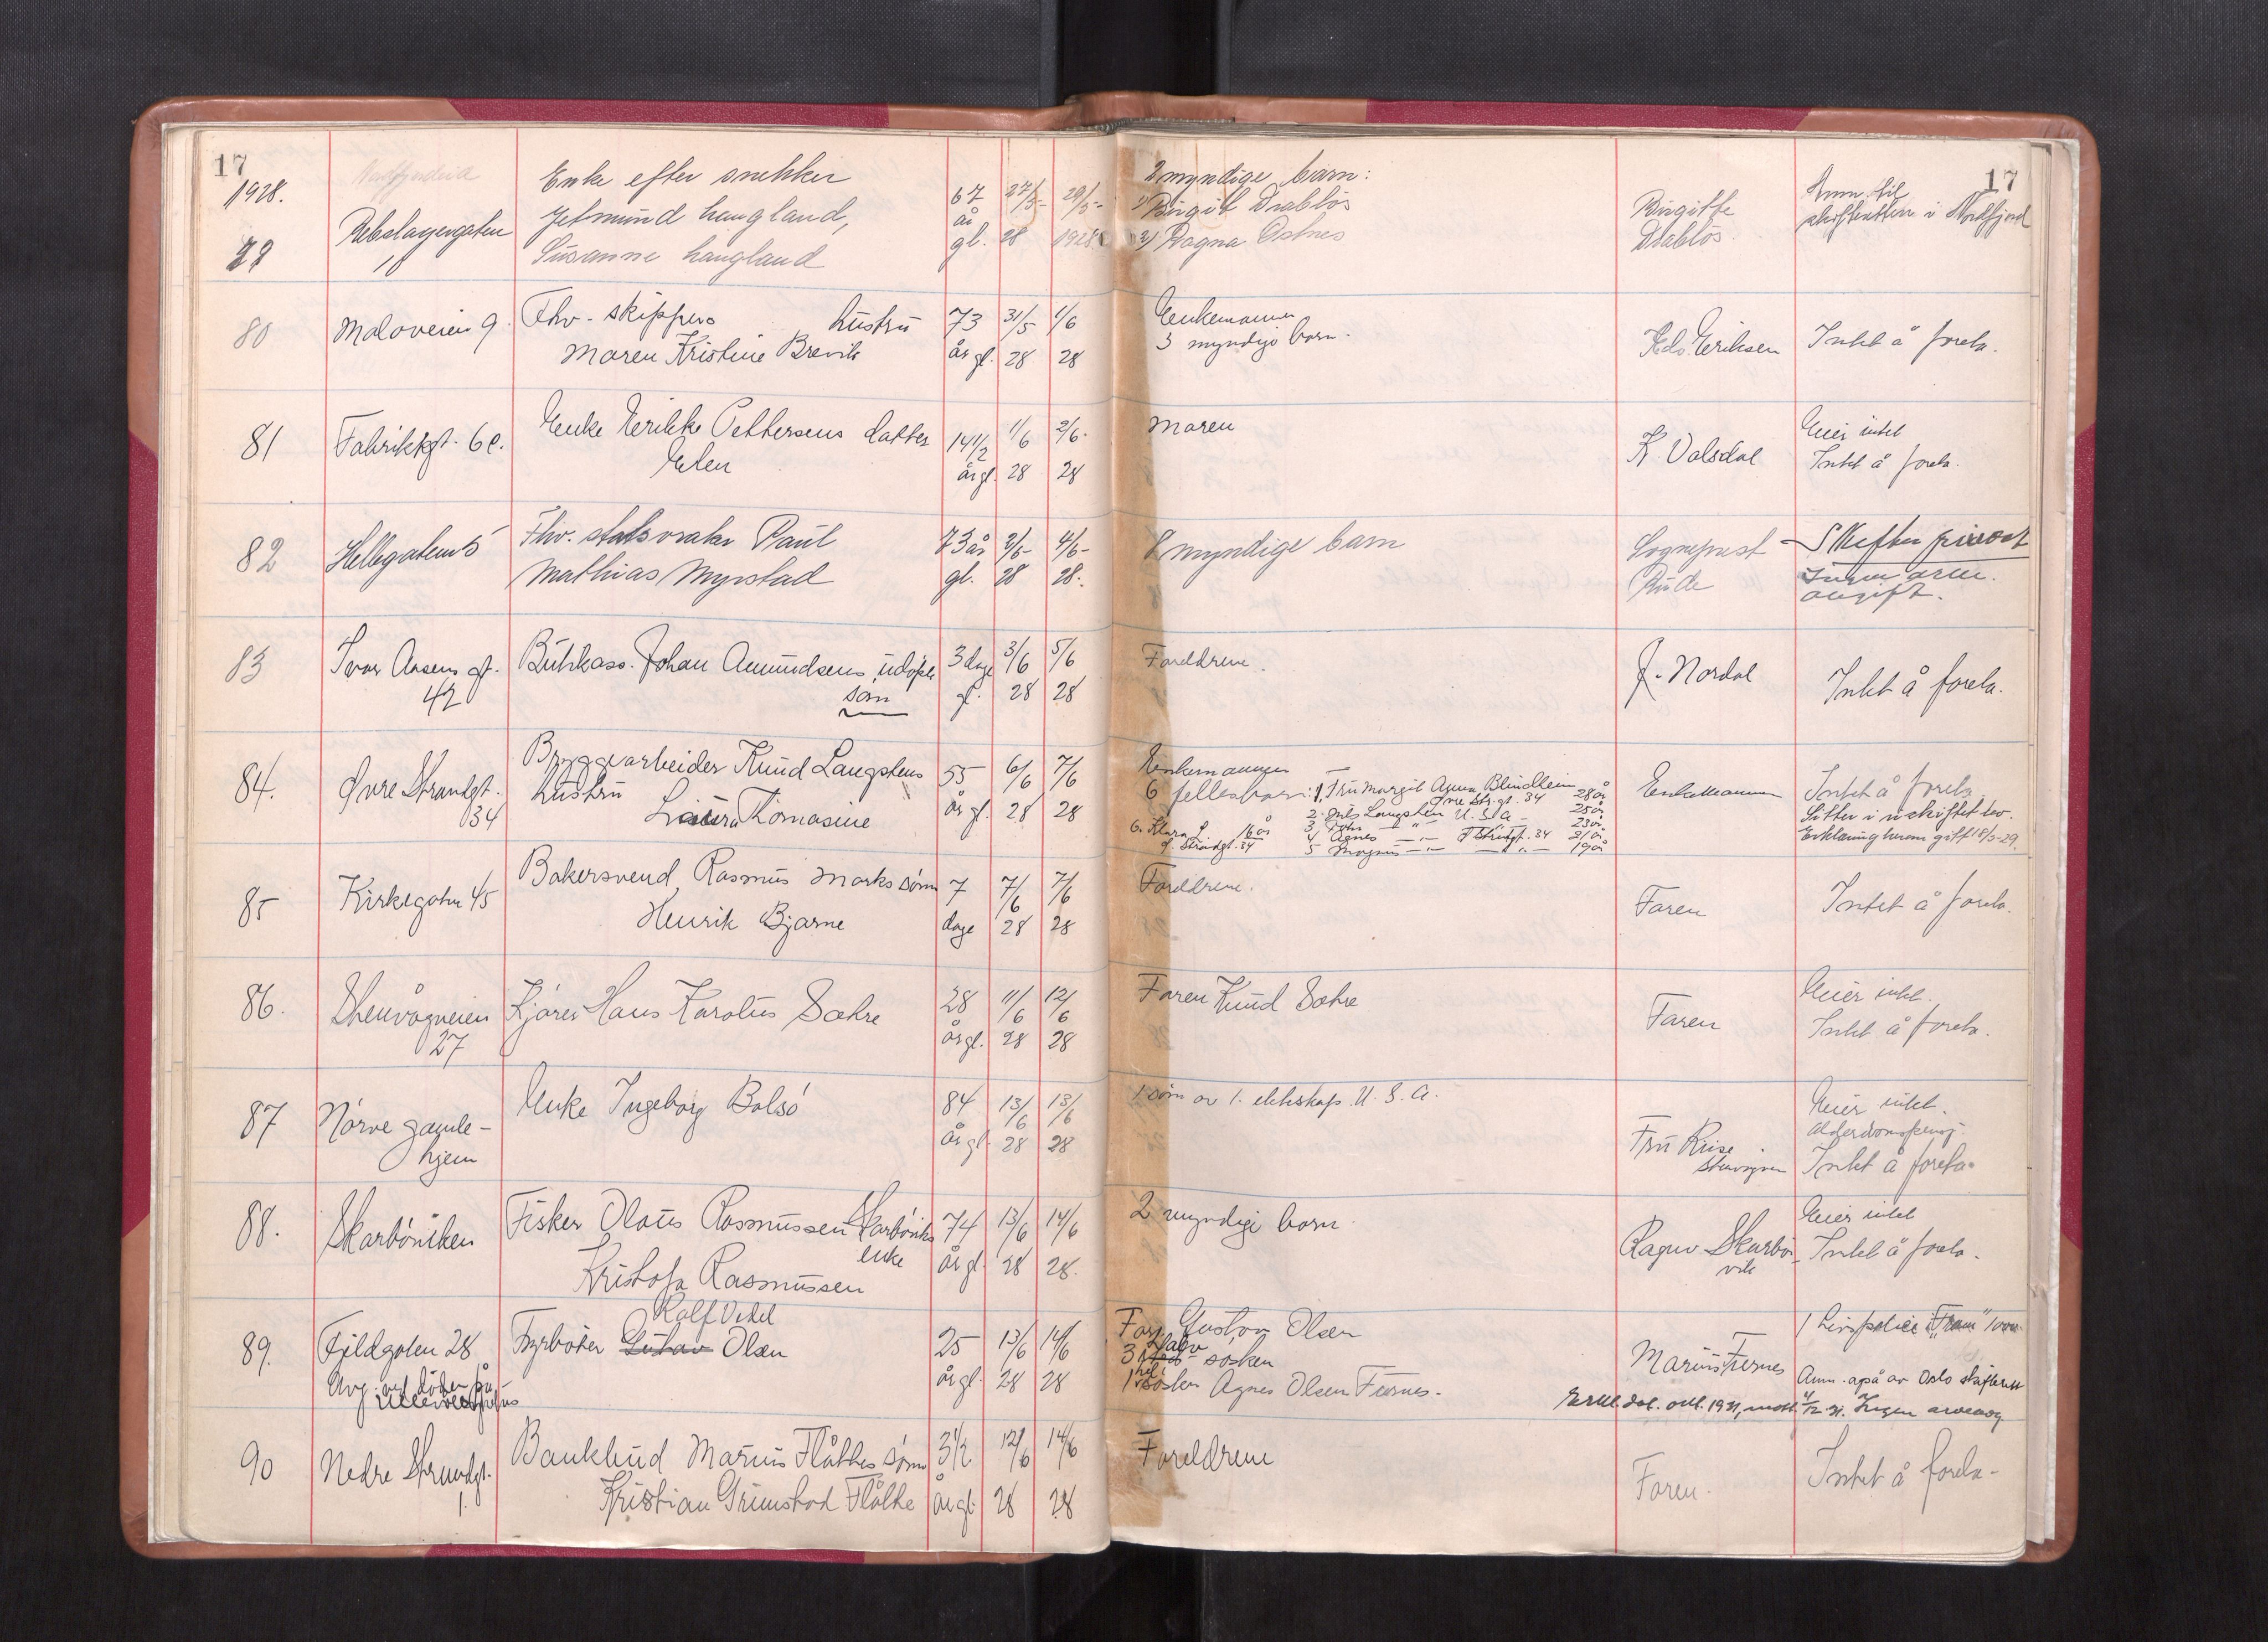 17
17
1928.
79
Rebslagergaten
10
Enke efter snekker
Jetmund Haugland,
Susanne Haugland
67
år
gl.
27/5-
28
29/5-
1928
2 myndige barn:
1) Birgit Drabløs
2) Ragna Ostnes
Birgitte
Drabløs.
Anm. til
skifteretten i Nordfjord
80
Moloveien 9.
Fhv. skippers hustru
Maren Kristine Brevik
73
år gl.
31/5
28
1/6
28
Enkemannen
3 myndige barn.
Eriksen
Intet å foreta.
81
Fabrikkgt. 6 c.
Enke Erikke Pettersens datter
Elen
14 1/2
år gl.
1/6
28
2/6.
28
Moren
K. Valsdal
Eier intet
Intet å foreta.
82
Hellegaten 5
Fhv. statsvraker Paul
Mathias Myrstad
73 år
gl.
2/6-
28
4/6-
28.
8 myndige barn
Sogneprest
Rude
Skifter privat
Ingen arve.
avgift.
83
Ivar Aasens gt.
42
Butikkass. Johan Amundsens udøpte
søn
3 dage
gl.
3/6
28
5/6
28
Foreldrene.
J. Nordal
Intet å foreta.
84.
Øvre Strandgt.
34
Bryggearbeider Knud Langstens
hustru
Laura Thomasine
55
år gl.
6/6
28
7/6
28
Enkemannen
6 fellesbarn: 1. Fru Margit Anna Blindheim 28 år
Øvre Str.gt. 34
2. Jens Langsten U.S.A - 25 år
3 John — " — 23 år
4 Agnes — " — Ø. Strandgt. 34 21 år
5 Magnus — " — — " — 19 år
6. Klara L. 16 år
Ø. Strandgt. 34
Enkemannen
Intet å foreta
Sitter i uskiftet bo.
Erklæring herom gitt 18/3-29.
85
Kirkegaten 45
Bakersvend Rasmus Marks søn
Henrik Bjarne
7
dage
7/6
28
7/6
28
Foreldrene.
Faren
Intet å foreta.
86.
Stenvågveien
27
Kjører Hans Karolus Sæhre
28
år gl.
11/6
28
12/6
28
Faren Knud Sæhre
Faren
Eier intet.
Intet å foreta.
87
Nørve gamle-
hjem
Enke Ingeborg Bolsø
84
år gl.
13/6
28
13/6
28
1 søn av 1. ekteskap. U.S.A.
Fru Riise
Eier intet.
Intet å foreta.
88.
Skarbøviken
Fisker Olaus Rasmussen Skarbøviks
enke
Kristofa Rasmussen
74
år gl.
13/6
28
14/6
28.
2 myndige barn.
Ragnv Skarbø-
vik
Eier intet
Intet å foreta.
89.
Fjeldgaten 28
Avg. ved døden på
Ullevål sykehus
Rolf Odel
Fyrbøter Gustav Olsen
25
år gl.
13/6
28
14/6
28
Far Gustav Olsen
halv
3 søsken
hel
1 søsken Agnes Olsen Furnes.
Marius Furnes
1 Livspolice i "Fram" 1000
Anm. også av Oslo skifterett
Erkl. dat. okt. 1931, mott. 4/12-31. Ingen arveavg.
90
Nedre Strandgt.
1.
Bankbud Marius Flåthes søn
Kristian Grimstad Flåthe
3 1/2
år gl.
12/6
28
14/6
28
Foreldrene
Faren.
Intet å foreta.